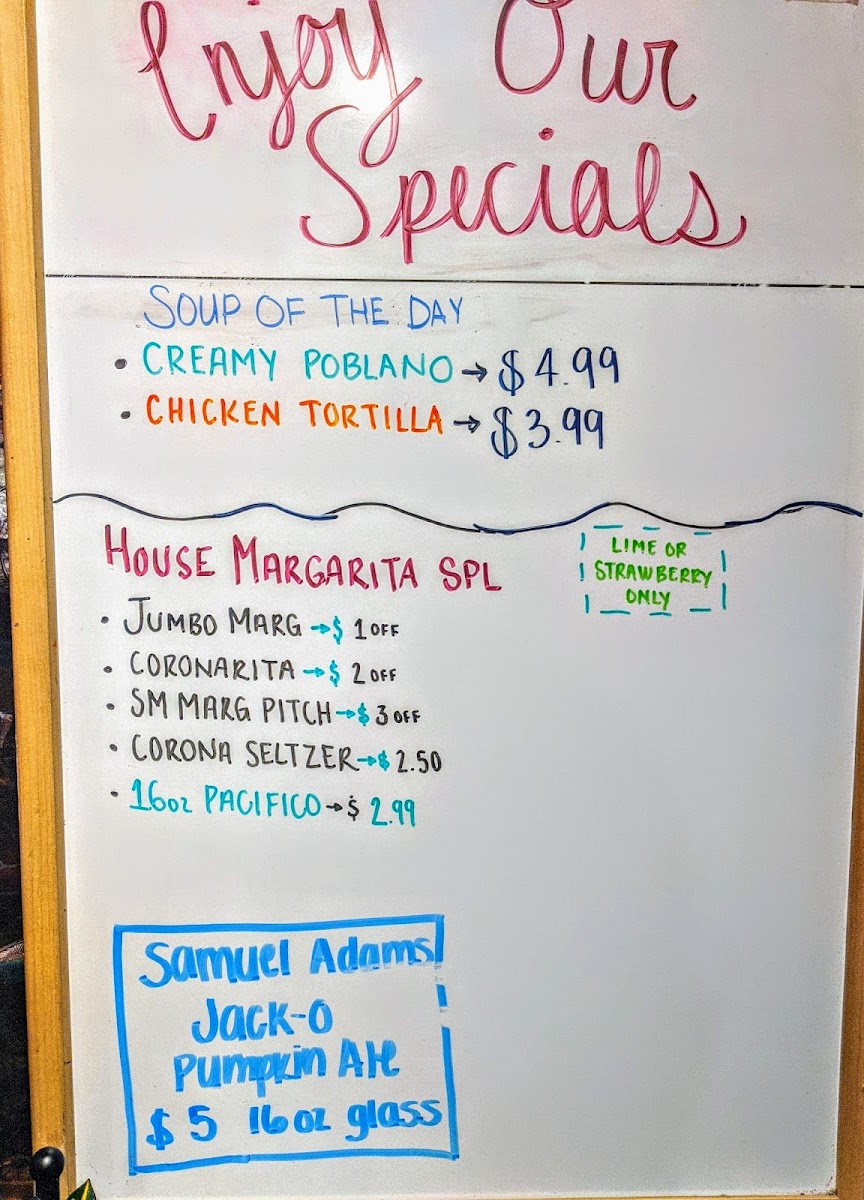 Enjoy Our
Specials
SOUP OF THE DAY
• CREAMY POBLANO → $4.99
• CHICKEN TORTILLA → $3.99
HOUSE MARGARITA SPL
LIME OR
STRAWBERRY
ONLY
• JUMBO MARG → $ 1 OFF
• CORONARITA → $ 2 OFF
• SM MARG PITCH → $ 3 OFF
• CORONA SELTZER → $ 2.50
• 16oz PACIFICO → $ 2.99
Samuel Adams
Jack-O
Pumpkin Ale
$5 16oz glass